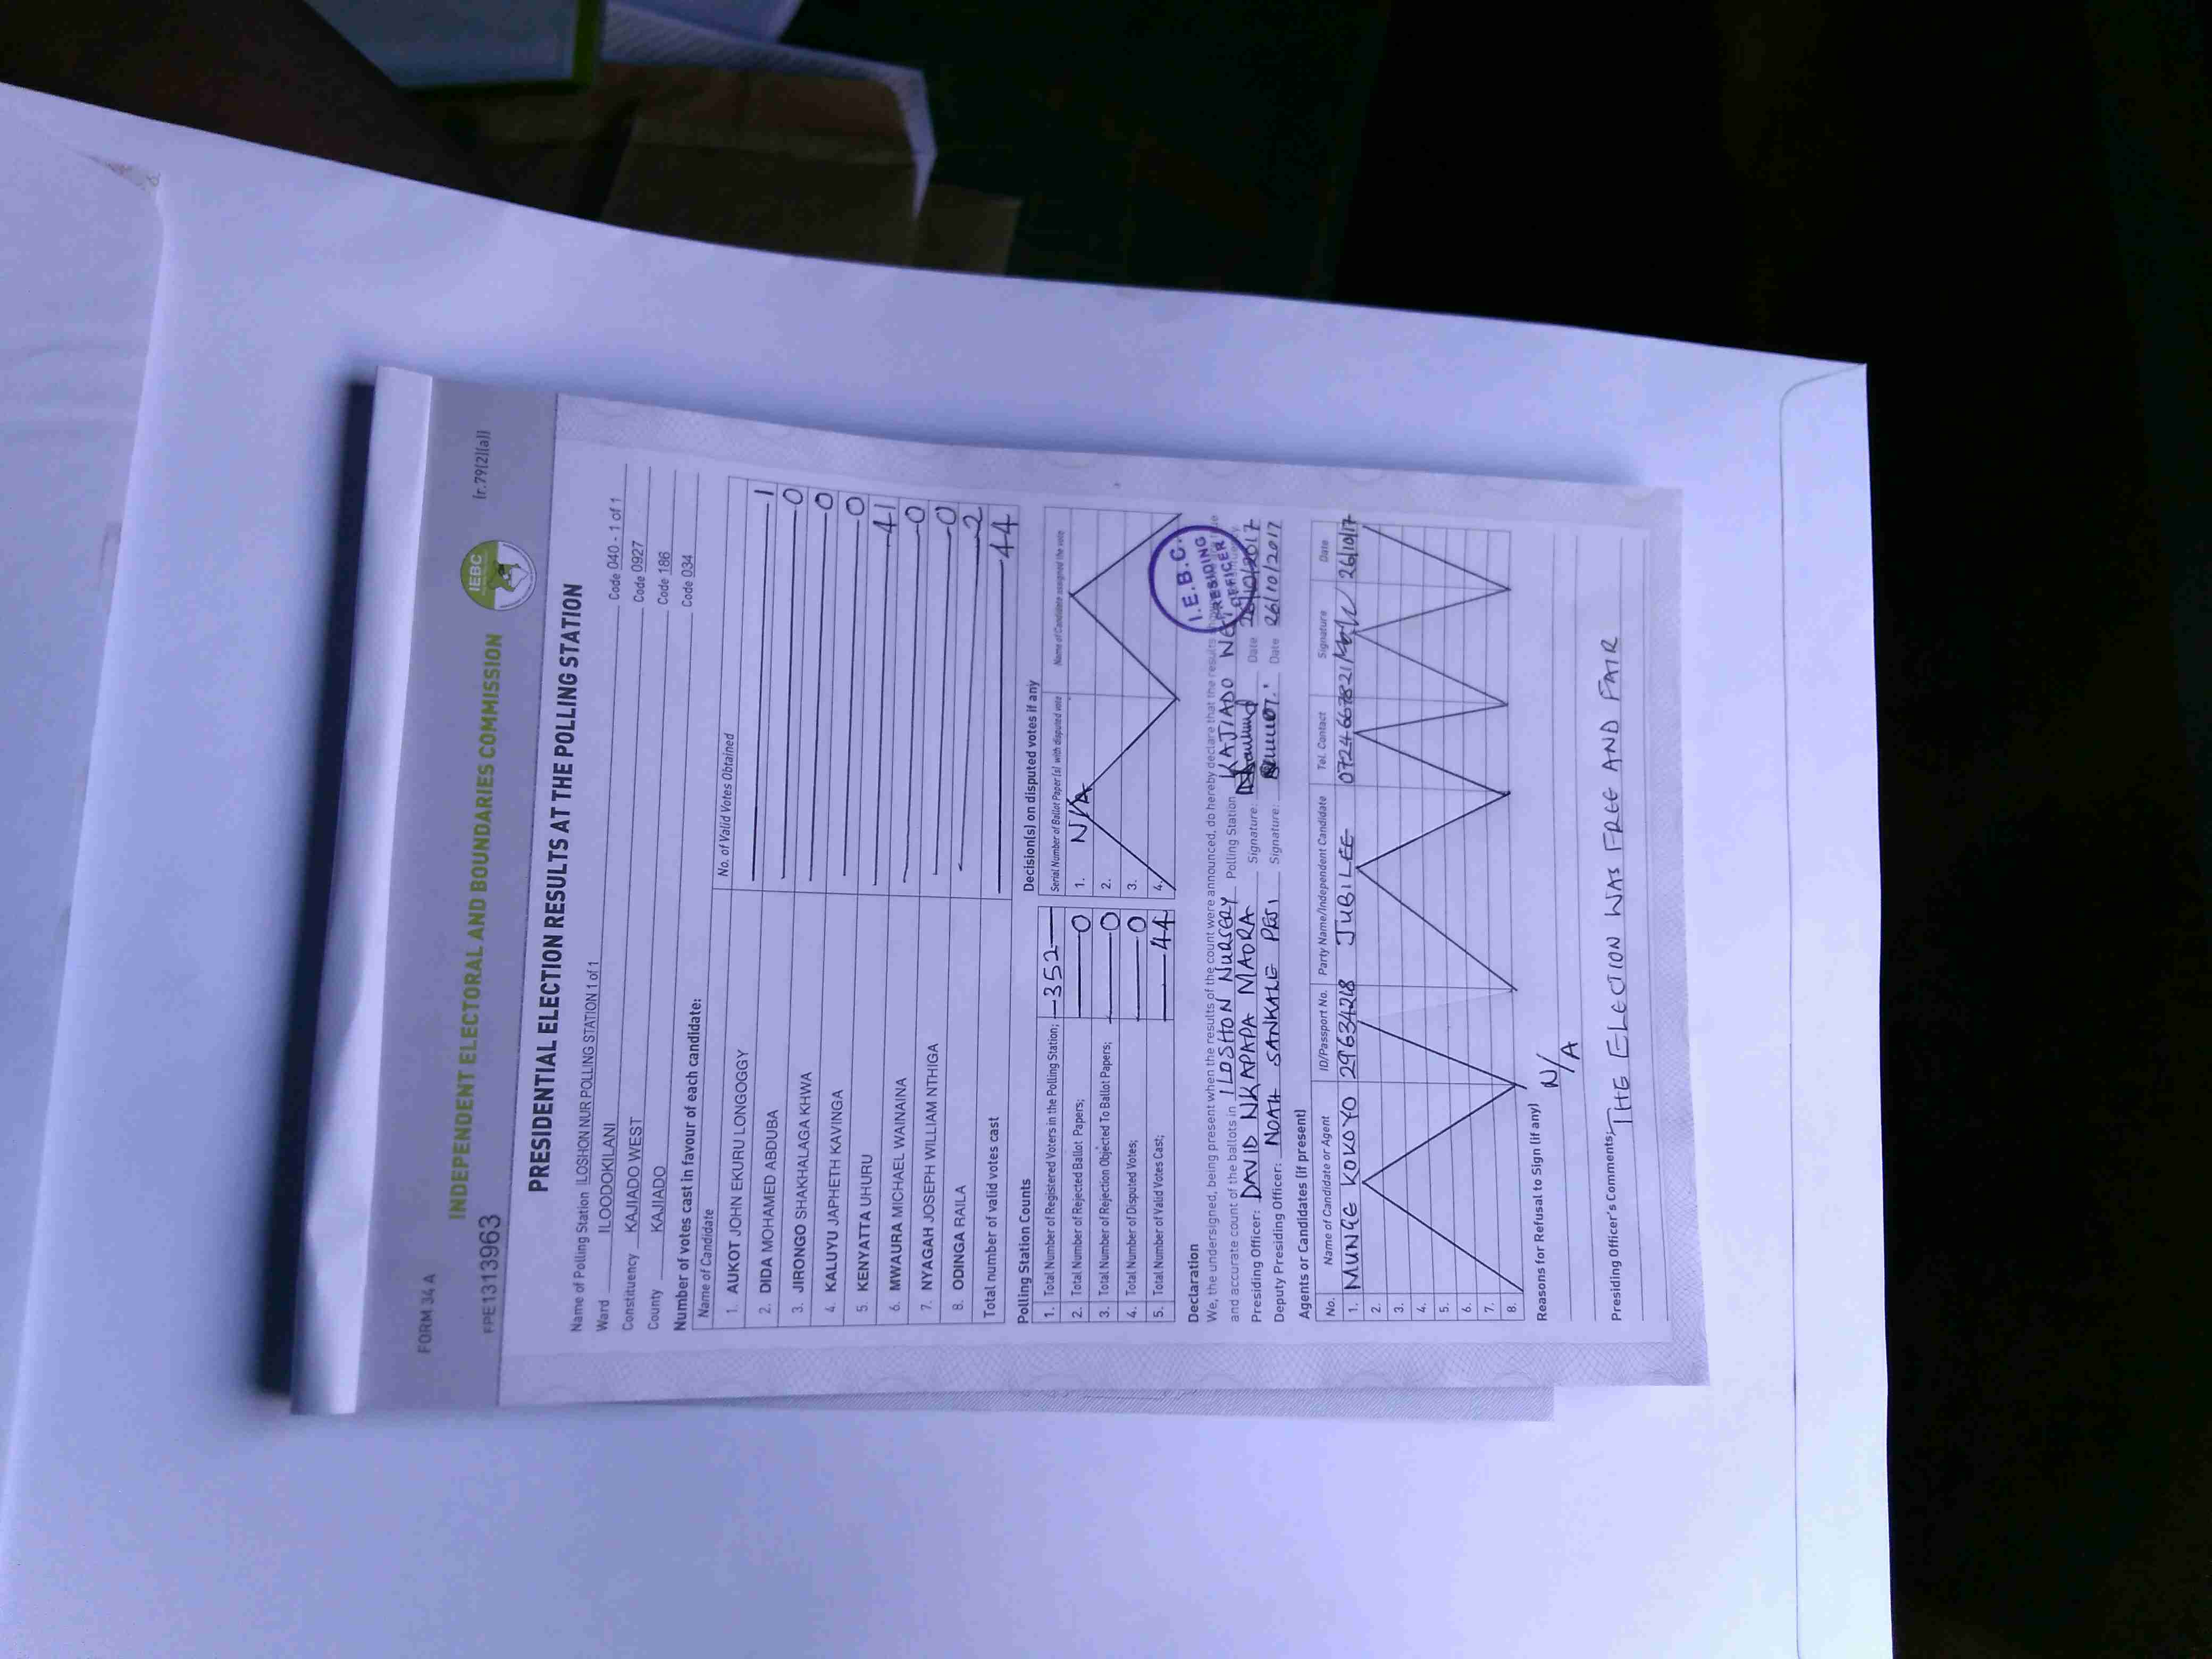 FORM 34 A
FPE1313963
INDEPENDENT ELECTORAL AND BOUNDARIES COMMISSION
IEBC
(r.79(2)(a))
PRESIDENTIAL ELECTION RESULTS AT THE POLLING STATION
Name of Polling Station ILOSHON NUR POLLING STATION 1 of 1 Code 040 - 1 of 1
Ward ILOODOKILANI Code 0927
Constituency KAJIADO WEST Code 186
County KAJIADO Code 034
Number of votes cast in favour of each candidate:
Name of Candidate No. of Valid Votes Obtained
1. AUKOT JOHN EKURU LONGOGGY 1
2. DIDA MOHAMED ABDUBA 0
3. JIRONGO SHAKHALAGA KHWA 0
4. KALUYU JAPHETH KAVINGA 0
5 KENYATTA UHURU 41
6. MWAURA MICHAEL WAINAINA 0
7. NYAGAH JOSEPH WILLIAM NTHIGA 0
8. ODINGA RAILA 2
Total number of valid votes cast 44
Polling Station Counts
1. Total Number of Registered Voters in the Polling Station; 352
2. Total Number of Rejected Ballot Papers; 0
3. Total Number of Rejection Objected To Ballot Papers; 0
4. Total Number of Disputed Votes; 0
5. Total Number of Valid Votes Cast; 44
Decision(s) on disputed votes if any
Serial Number of Ballot Paper (s) with disputed vote Name of Candidate assigned the vote
1. N/A
2.
3.
4.
Declaration
We, the undersigned, being present when the results of the count were announced, do hereby declare that the results
and accurate count of the ballots in ILOSHON NURSERY Polling Station KAJIADO
Presiding Officer: DAVID NKAPAPA MAORA Signature: Date 26/10/2017
Deputy Presiding Officer: NOAH SANKALE Signature: Date 26/10/2017
I.E.B.C.
PRESIDING
OFFICER
Agents or Candidates (if present)
No. Name of Candidate or Agent ID/Passport No. Party Name/Independent Candidate Tel. Contact Signature Date
1. MUNGE KOKOYO 29634218 JUBILEE 0724667821 26/10/17
2.
3.
4.
5.
6.
7.
8.
Reasons for Refusal to Sign (if any)
N/A
Presiding Officer's Comments; THE ELECTION WAS FREE AND FAIR